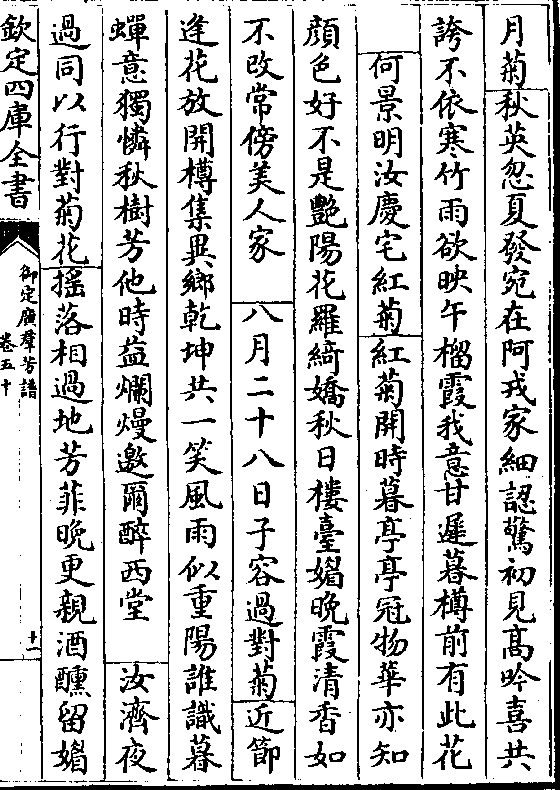 月菊秋英忽夏發宛在阿戎家細認驚初見髙吟喜共
誇不依寒竹雨欲映午榴霞我意甘遲暮樽前有此花
何景明汝慶宅紅菊紅菊開時暮亭亭冠物華亦知
顔色好不是艷陽花羅綺嬌秋日樓臺媚晩霞清香如
不改常傍美人家　八月二十八日子容過對菊近節
逢花放開樽集異鄉乾坤共一笑風雨似重陽誰識暮
蟬意獨憐秋樹芳他時益爛熳邀爾醉西堂　汝濟夜
過同以行對菊花搖落相過地芳菲晩更親酒醺留媚
欽定四庫全書
御定廣羣芳譜
卷五十
十一